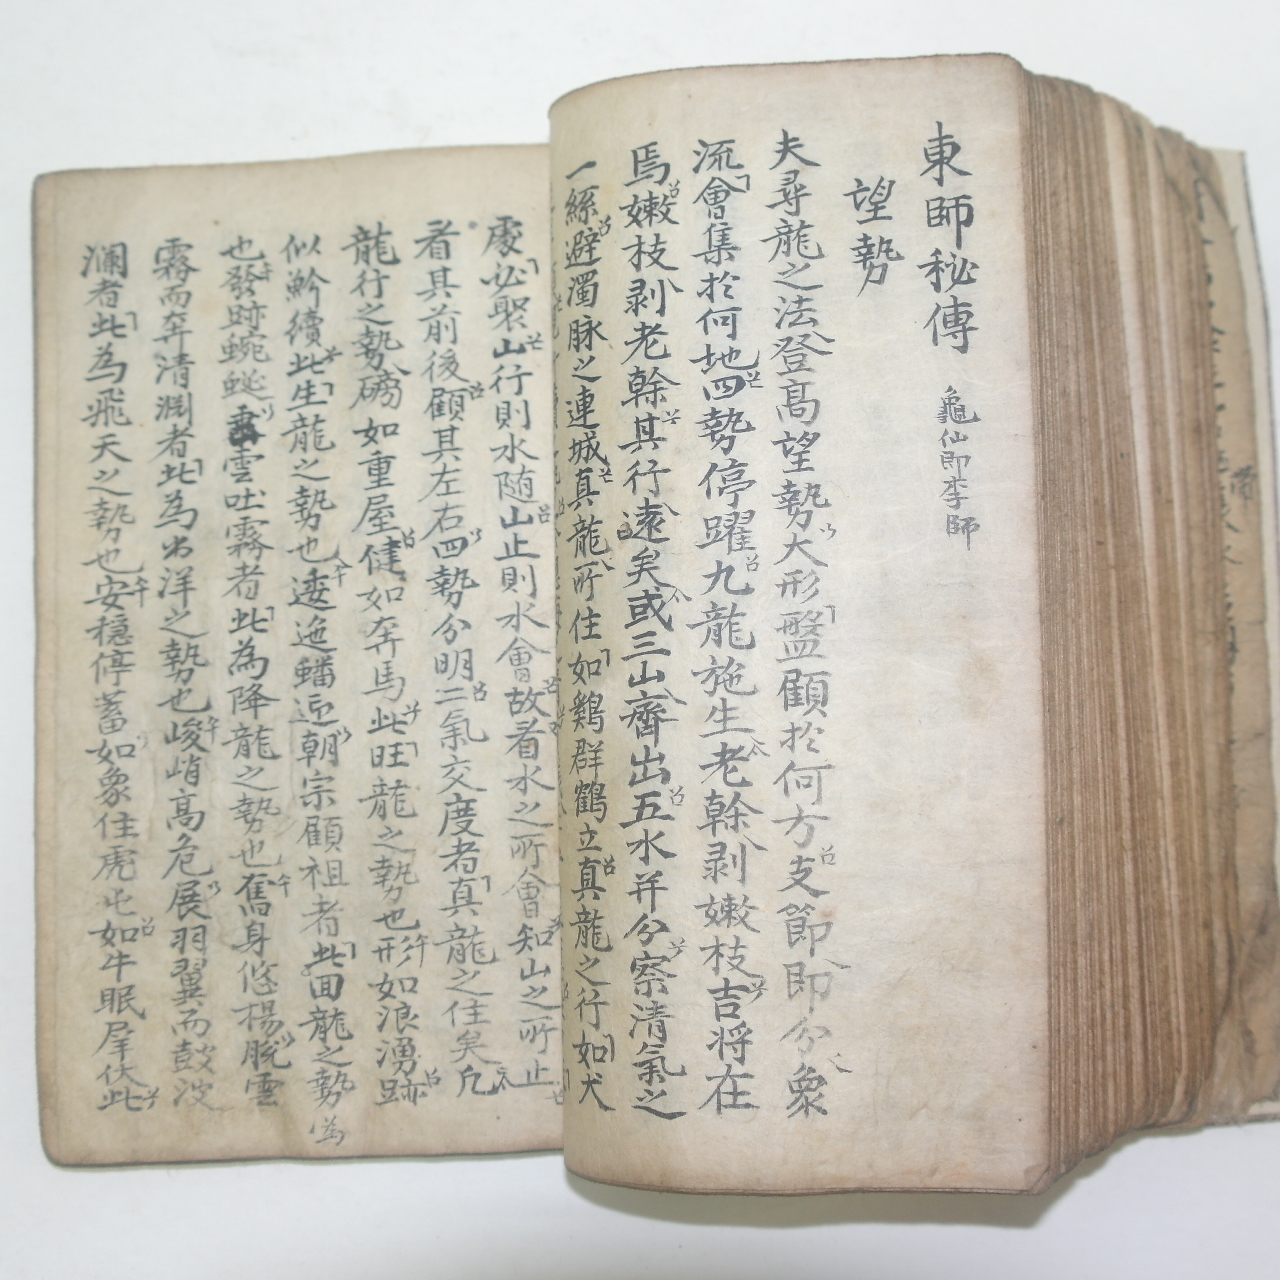 東師秘傳 龜仙即李師
望勢
夫尋龍之法登高望勢大形盤顧於何方支節即分象
流會集於何地四勢停躍九龍施生老幹剥嫩枝吉将在
焉嫩枝剥老幹其行遠矣或三山齊出五水并分察清氣之
一絲避濁脉之連城真龍所住如鷄群鶴立真龍之行如犬
處必聚山行則水随山止則水會故看水之所會知山之所止
看其前後顧其左右四勢分明二氣交度者真龍之住矣凡
龍行之勢磅如重屋健如奔馬此旺龍之勢也形如浪湧跡
似鱗續此生龍之勢也逶迤蟠逥朝宗顧祖者此面龍之勢
也發跡蜿蜒雲吐霧者此為降龍之勢也奮身悠楊脱雲
霧而奔清渊者此為出洋之勢也峻峭高危展羽翼而鼓波
瀾者此為飛天之勢也安穏停蓄如象住虎屯如牛眠犀伏此
為